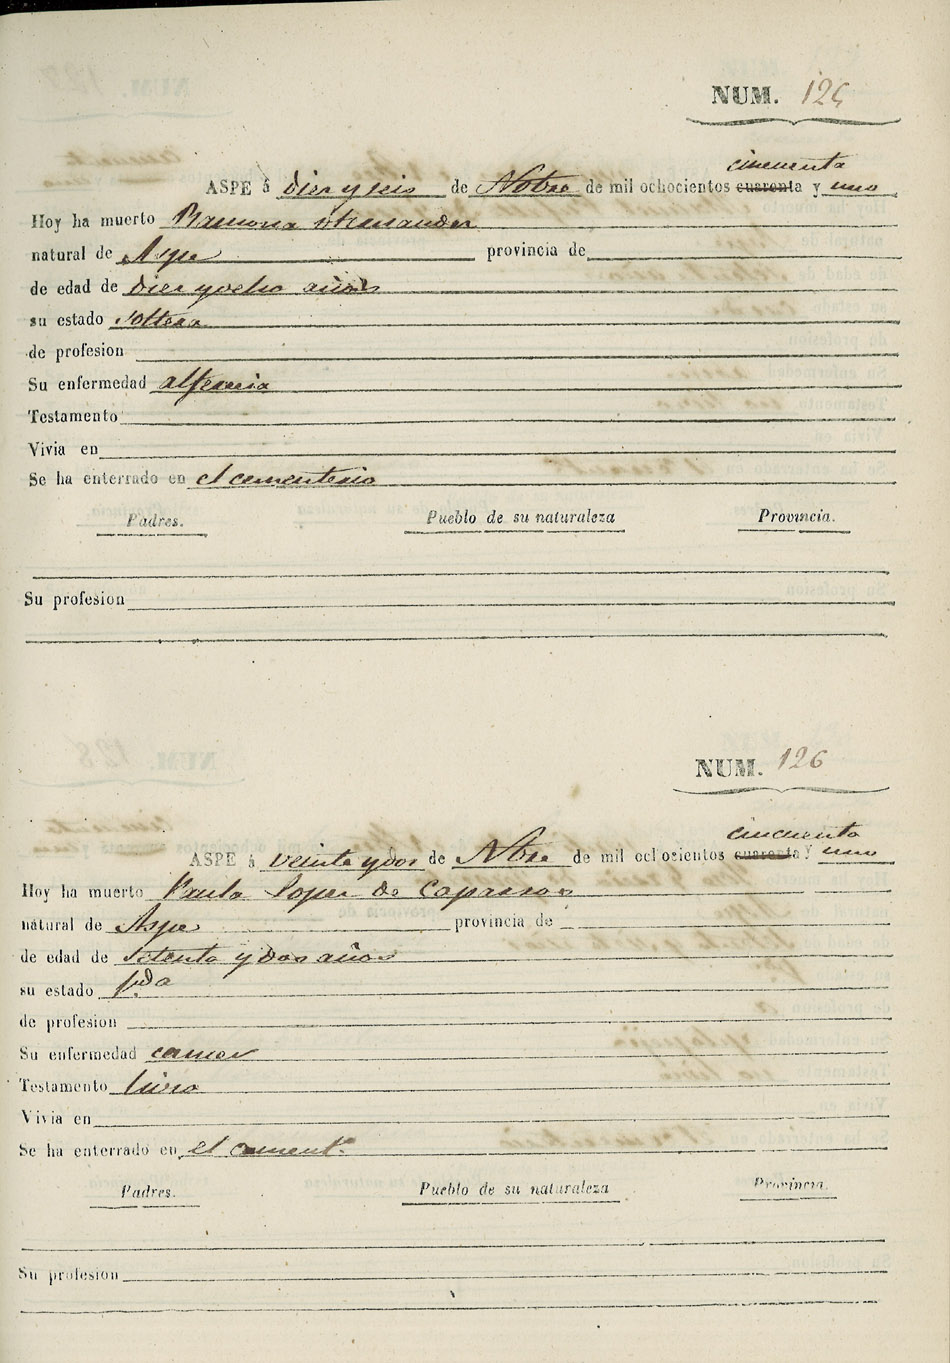 NUM. 125
cincuenta
ASPE á diez y seis de Nobre de mil ochocientos cuarenta y uno
Hoy ha muerto Ramona Hernandez
natural de Aspe provincia de
de edad de diez y ocho años
su estado Soltera
de profesion
Su enfermedad alferecia
Testamento
Vivia en
Se ha enterrado en el cementerio
Padres. Pueblo de su naturaleza Provincia.
Su profesion
NUM. 126
cincuenta
ASPE á veinte y dos de Nbre de mil ochosientos cuarenta y uno
Hoy ha muerto Paula Lopez de
natural de Aspe provincia de
de edad de Setenta y dos años
su estado
de profesion
Su enfermedad cancer
Testamento
Vivia en
Se ha enterrado en el cement.º
Padres. Pueblo de su naturaleza Provincia.
Su profesion